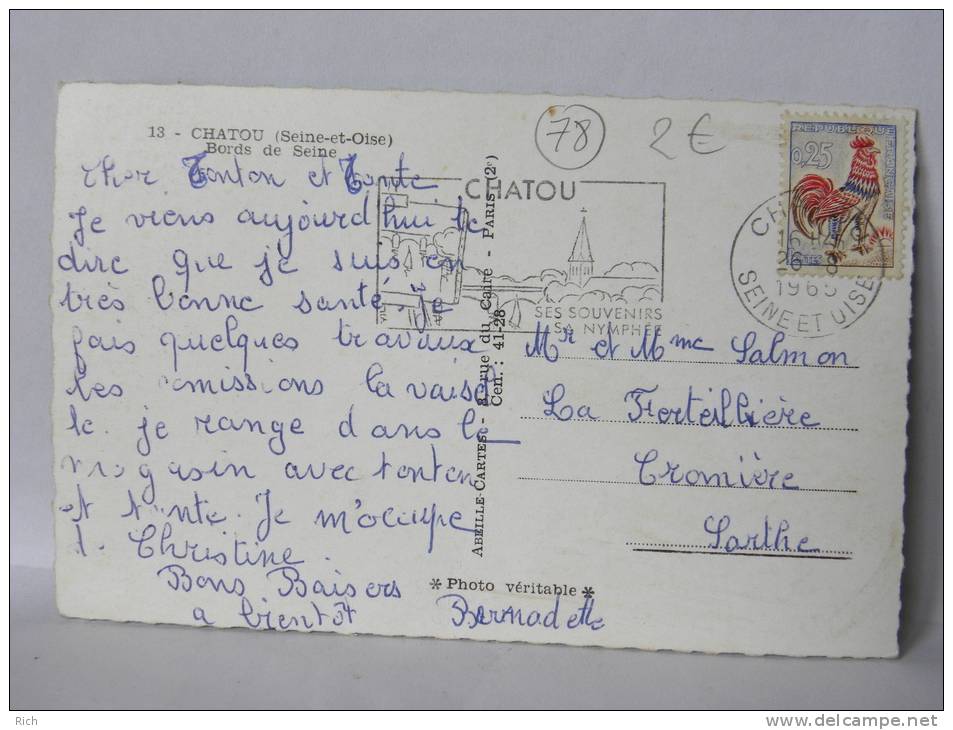 13 - CHATOU (Seine-et-Oise)
Bords de Seine
Cher Tonton et Tante
Je viens aujourd'hui te
dire que je suis en
très bonne santé, je
fais quelques travaux
les comissions la vaisel
le. je range dans le
magasin avec tonton
et tante. Je m'occupe
d. Christine.
Bons Baisers
a bientôt Bernadette
78
2€
CHATOU
SES SOUVENIRS
SA NYMPHÉE
RÉPUBLIQUE FRANÇAISE
0,25
POSTES
26
1965
SEINE ET OISE
ABEILLE-CARTES - 8, rue du Caire - PARIS (2e)
Cen. : 41-28
Mr et Mme Salmon
La Forteillière
Cromière
Sarthe
* Photo véritable *
Rich
delcampe.net